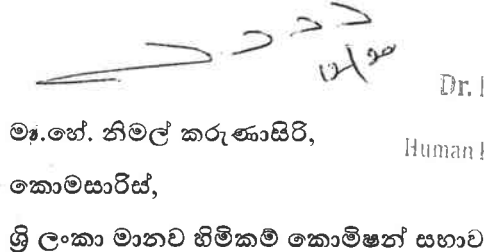 12/20
Dr.
මා.හේ. නිමල් කරුණාසිරි,
Human
කොමසාරිස්,
ශ්‍රී ලංකා මානව හිමිකම් කොමිෂන් සභාව